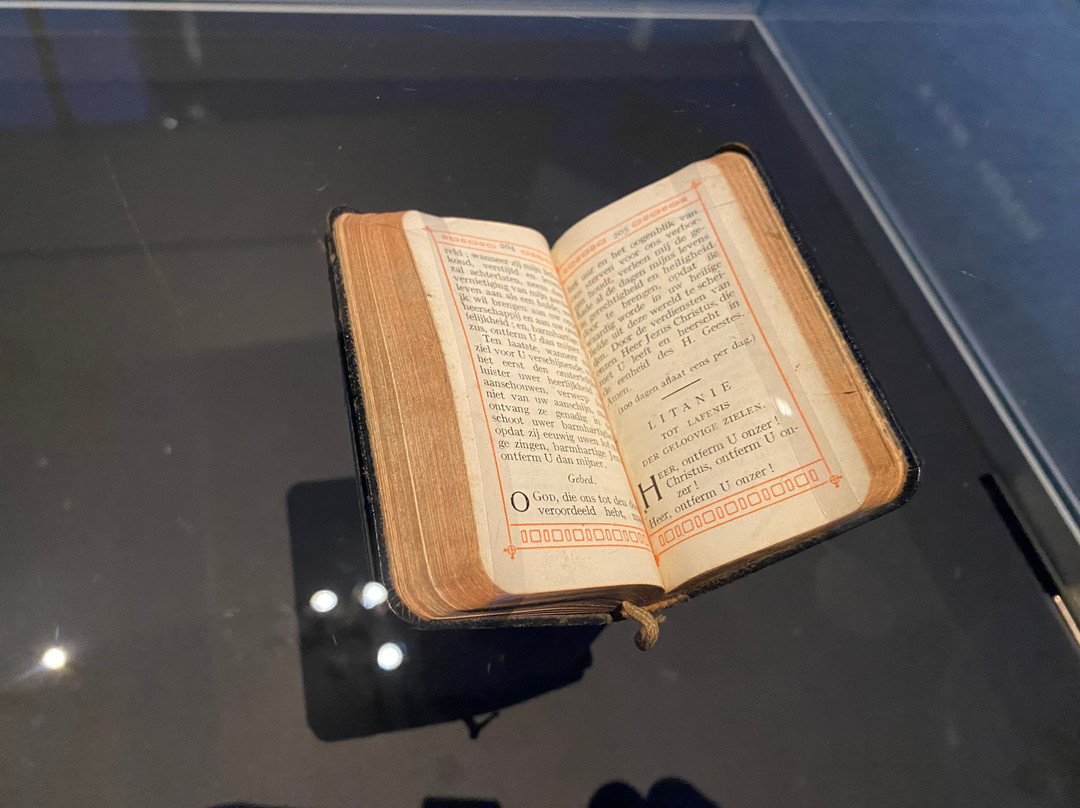 204
reld; wanneer zij mijn
koud, verstijfd, en
zal achterlaten, neem
vernietiging van mijn
leven aan als een hulde
ik wil brengen aan uw
heerschappij en aan uw
lelijkheid; en, barmhartige
zus, ontferm U dan mijner
Ten laatste, wanneer
ziel voor U verschijnende,
het eerst den
luister uwer heerlijkheid
aanschouwen, verwerp
niet van uw aanschijn,
ontvang ze genadig in
schoot uwer
opdat zij eeuwig uwen lof
ge zingen, barmhartige
ontferm U dan mijner.
Gebed.
O God, die ons tot den
veroordeeld hebt,
205
uur en het oogenblik van
sterven voor ons verbor-
houdt, verleen mij de ge-
al de dagen mijns levens
gerechtigheid en heiligheid
door te brengen, opdat ik
waardig worde in uw heilige
liefde uit deze wereld te schei-
den. Door de verdiensten van
onzen Heer Jezus Christus, die
met U leeft en heerscht in
de eenheid des H. Geestes.
Amen.
(100 dagen aflaat eens per dag.)
LITANIE
TOT LAFENIS
DER GELOOVIGE ZIELEN.
HEER, ontferm U onzer!
Christus, ontferm U on-
zer!
Heer, ontferm U onzer!